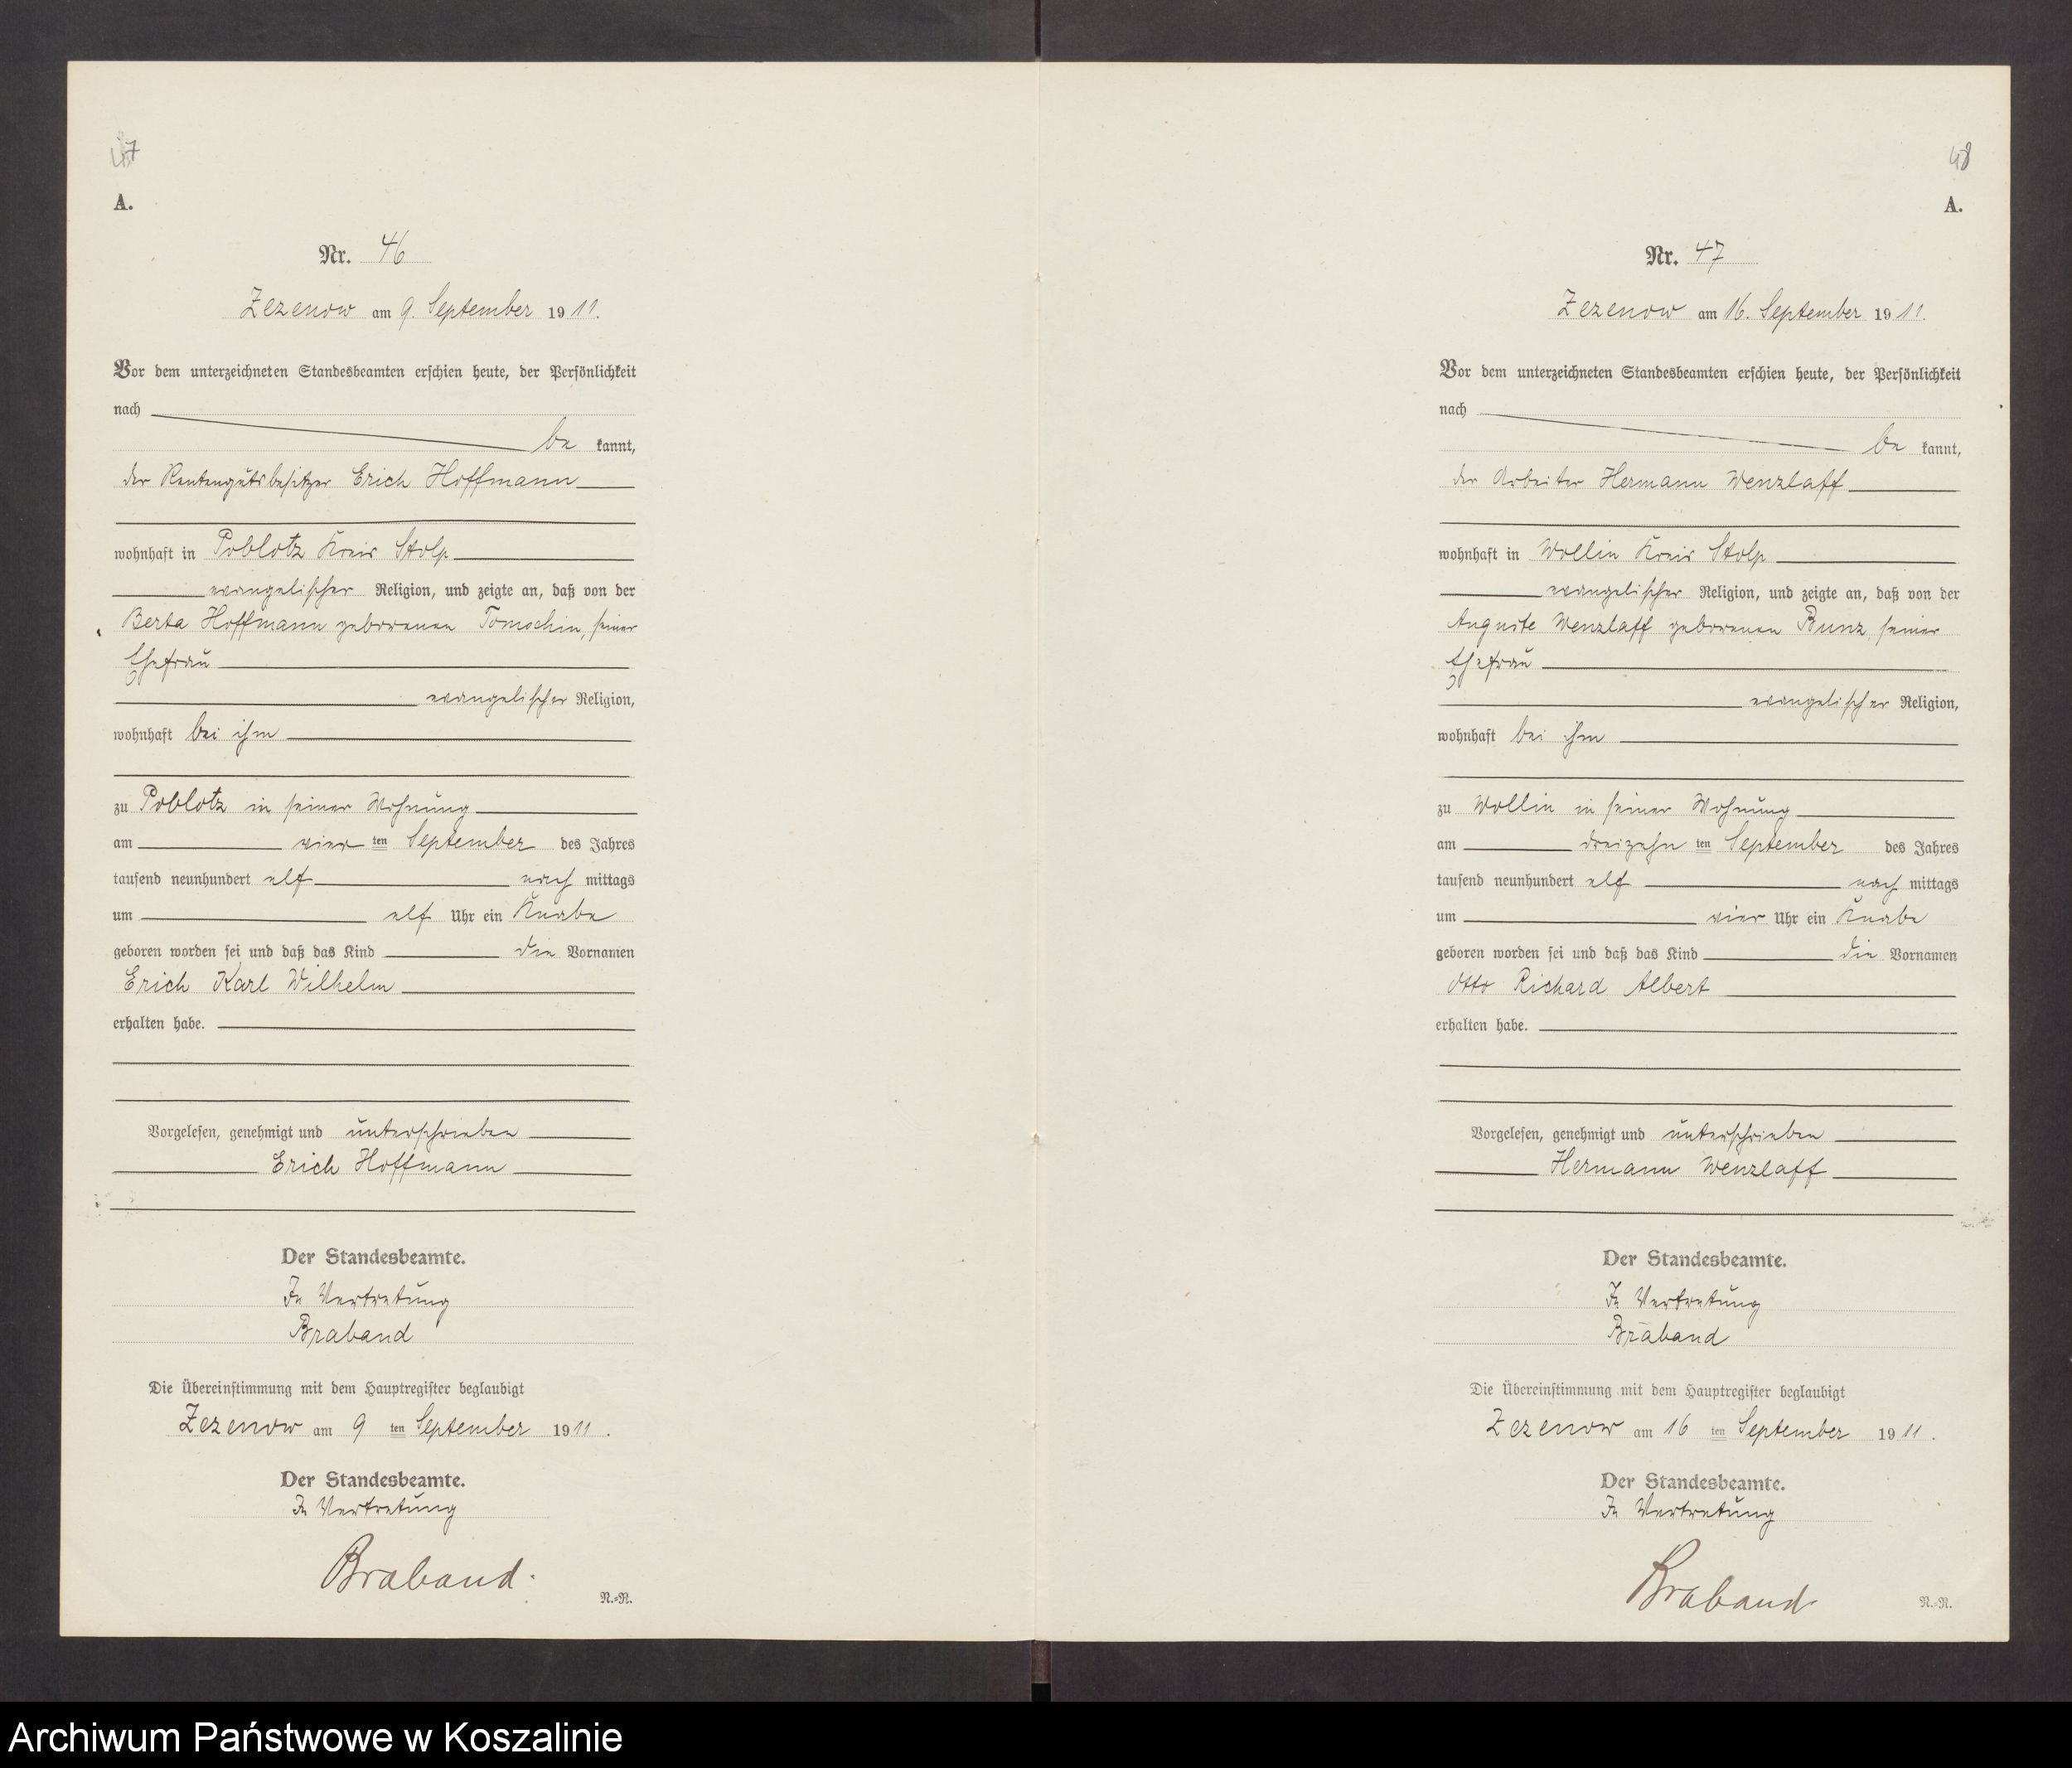 47
A.
Nr. 46
Zezenow am 9. September 1911.
Vor dem unterzeichneten Standesbeamten erschien heute, der Persönlichkeit
nach
be kannt,
der Rentengutsbesitzer Erich Hoffmann
wohnhaft in Poblotz Kreis Stolp
evangelischer Religion, und zeigte an, daß von der
Berta Hoffmann geborenen Tomschin, seiner
Ehefrau
evangelischer Religion,
wohnhaft bei ihm
zu Poblotz in seiner Wohnung
am vier ten September des Jahres
tausend neunhundert elf nach mittags
um elf Uhr ein Knabe
geboren worden sei und daß das Kind die Vornamen
Erich Karl Wilhelm
erhalten habe.
Vorgelesen, genehmigt und unterschrieben
Erich Hoffmann
Der Standesbeamte.
In Vertretung
Braband
Die Übereinstimmung mit dem Hauptregister beglaubigt
Zezenow am 9 ten September 1911.
Der Standesbeamte.
In Vertretung
Braband.
N.=R.
48
A.
Nr. 47
Zezenow am 16. September 1911.
Vor dem unterzeichneten Standesbeamten erschien heute, der Persönlichkeit
nach
be kannt,
der Arbeiter Hermann Wenzlaff
wohnhaft in Wollin Kreis Stolp
evangelischer Religion, und zeigte an, daß von der
Auguste Wenzlaff geborenen Bunz, seiner
Ehefrau
evangelischer Religion,
wohnhaft bei ihm
zu Wollin in seiner Wohnung
am dreizehn ten September des Jahres
tausend neunhundert elf nach mittags
um vier Uhr ein Knabe
geboren worden sei und daß das Kind die Vornamen
Otto Richard Albert
erhalten habe.
Vorgelesen, genehmigt und unterschrieben
Hermann Wenzlaff
Der Standesbeamte.
In Vertretung
Braband
Die Übereinstimmung mit dem Hauptregister beglaubigt
Zezenow am 16 ten September 1911.
Der Standesbeamte.
In Vertretung
Braband
N.=R.
Archiwum Państwowe w Koszalinie